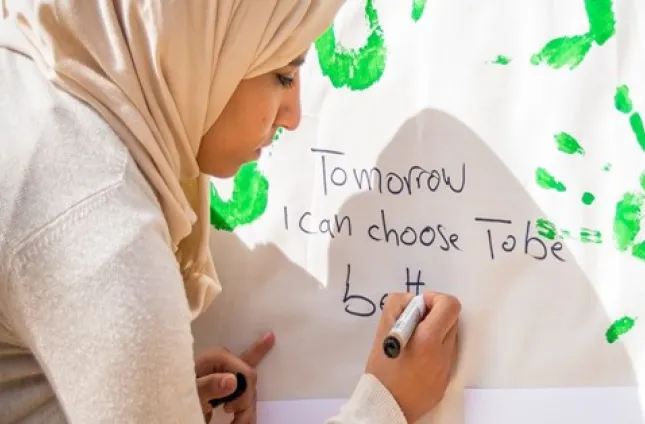 Tomorrow
I can choose To be
bett